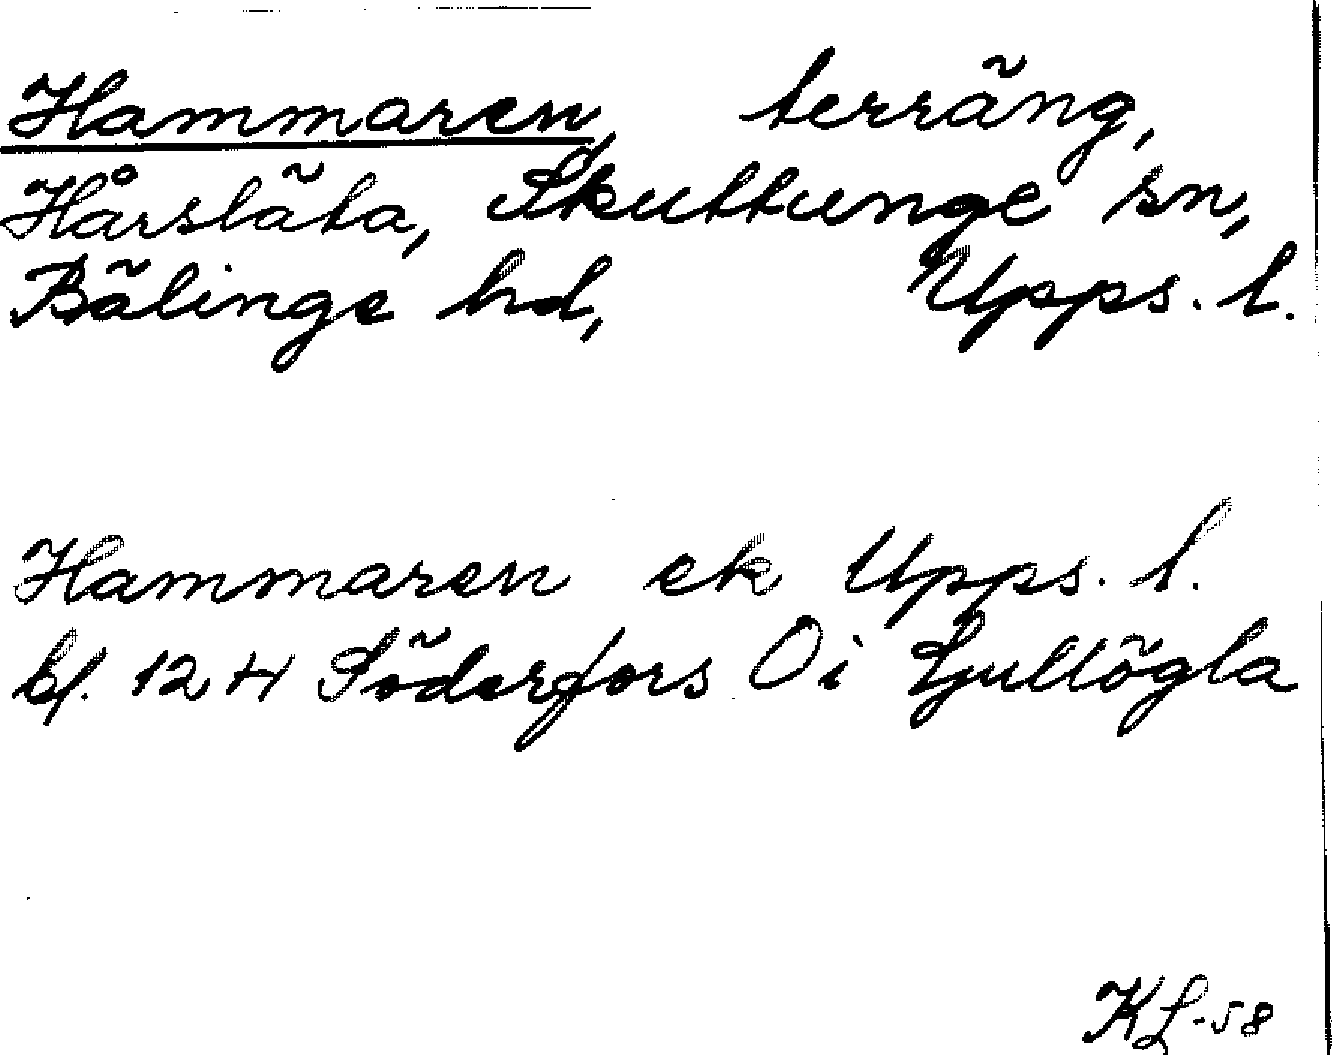 Hammaren, terräng,
Hårsläta, Skuttunge sn,
Bälinge hd, Upps. l.
Hammaren ek Upps. l.
bl. 124 Söderfors Oi Ljullögla
KL-58